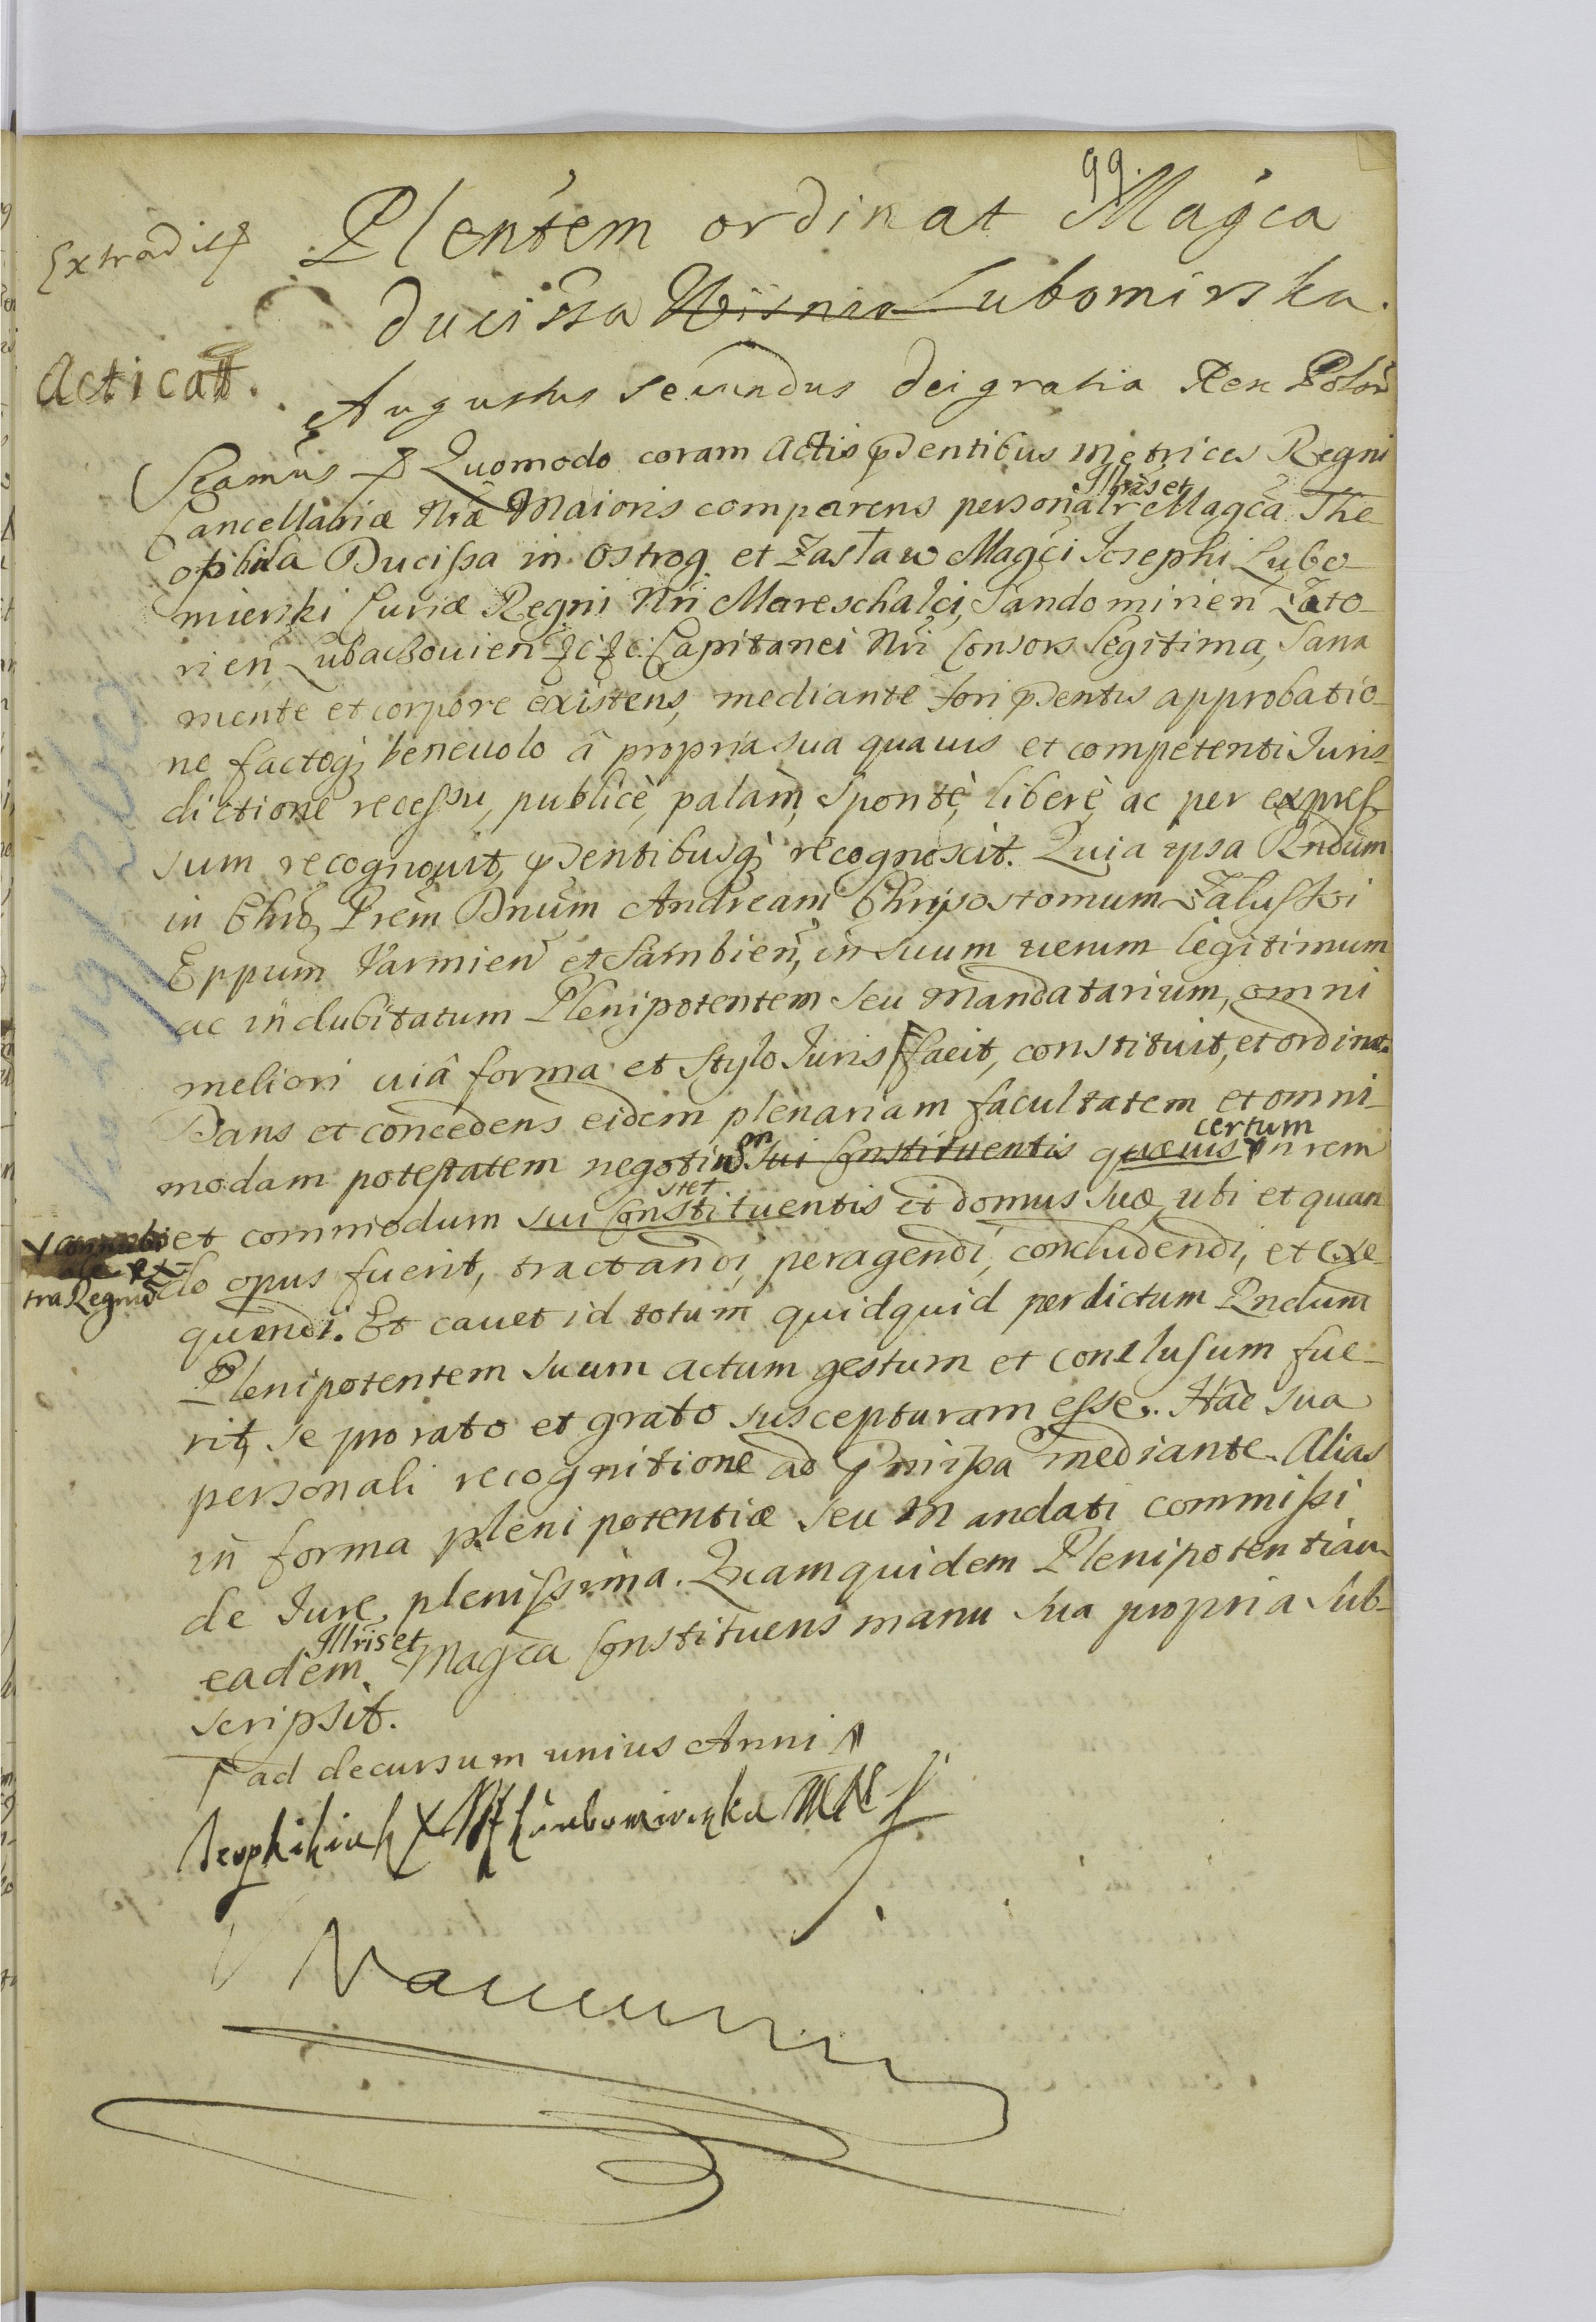 99.
Extradit
Plentem ordinat Magca
Ducissa Wisnio Lubomirska.
Acticatt.
Augustus Secundus Dei gratia Rex Polon
Seamus Quomodo coram Actis pdentibus metrices Regni
Cancellariæ Nræ Maioris comparens personalr Illris et Magca The-
ophila Ducissa in Ostrog et Zasław Magci Josephi Lubo-
mierski Curiæ Regni Nri Mareschalci, Sandomirien Zato-
rien Lubaczouien &c &c Capitanei Nri Consors legitima, Sana
mente et corpore existens, mediante fori pdentis approbatio-
ne factoq; beneuolo â propria sua quauis et competenti Juris-
dictione recessu, publicè, palàm, sponte, liberè, ac per expres-
sum recognouit, pdentibusq; recognoscit. Quia ipsa Rndum
in Chro Prem Dnum Andream Chrisostomum Załuski
Eppum Varmien et Sambien, in suum uerum legitimum
ac indubitatum Plenipotentem seu Mandatarium, omni
meliori uiâ forma et stylo Juris facit, constituit, et ordinat.
Dans et concedens eidem plenariam facultatem et omni-
modam potestatem negotium sui Constituentis quæuis certum in rem
et commodum sui Constituentis stet et domus suæ, ubi et quan
extra Regnum
do opus fuerit, tractandi, peragendi, concludendi, et exe-
quendi. Et cauet id totum quidquid per dictum Rndum
Plenipotentem suum actum gestum et conclusum fue-
rit, se pro rato et grato suscepturam esse. Hac sua
personali recognitione ad pmissa mediante. Alias
in forma plenipotentiæ seu Mandati commissi
de Jure plenissima. Quamquidem Plenipotentiam
eadem Illris et Magca Constituens manu sua propria sub-
scripsit.
ad decursum unius Anni
Teophila Lubomirska